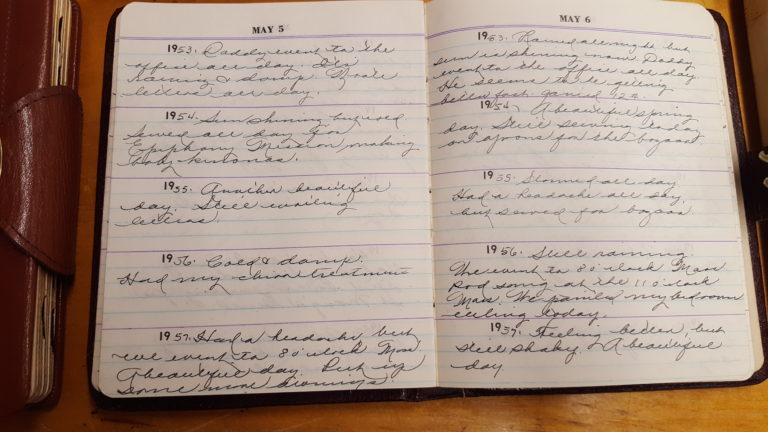 MAY 5
1953. Daddy went to the
office all day. It's
raining & damp. Wrote
letters all day.
1954. Sun shining but cool
Sewed all day for
Epiphany Mission making
baby kimonas.
1955. Another beautiful
day. Still writing
letters.
1956. Cold & damp.
Had my chiro treatment
1957. Had a headache but
we went to 8 o'clock Mass
A beautiful day. Put up
some more awnings.
MAY 6
1953. Rained all night but
sun is shining now. Daddy
went to the office all day.
He seems to be getting
better fast. Gained 12 lb.
1954. A beautiful spring
day. Still sewing today
on aprons for the bazaar.
1955. Stormed all day
Had a headache all day,
but sewed for bazaar.
1956. Still raining.
We went to 8 o'clock Mass
Rod song at the 11 o'clock
Mass. We painted my bedroom
ceiling today.
1957. Feeling better, but
still shaky. A beautiful
day